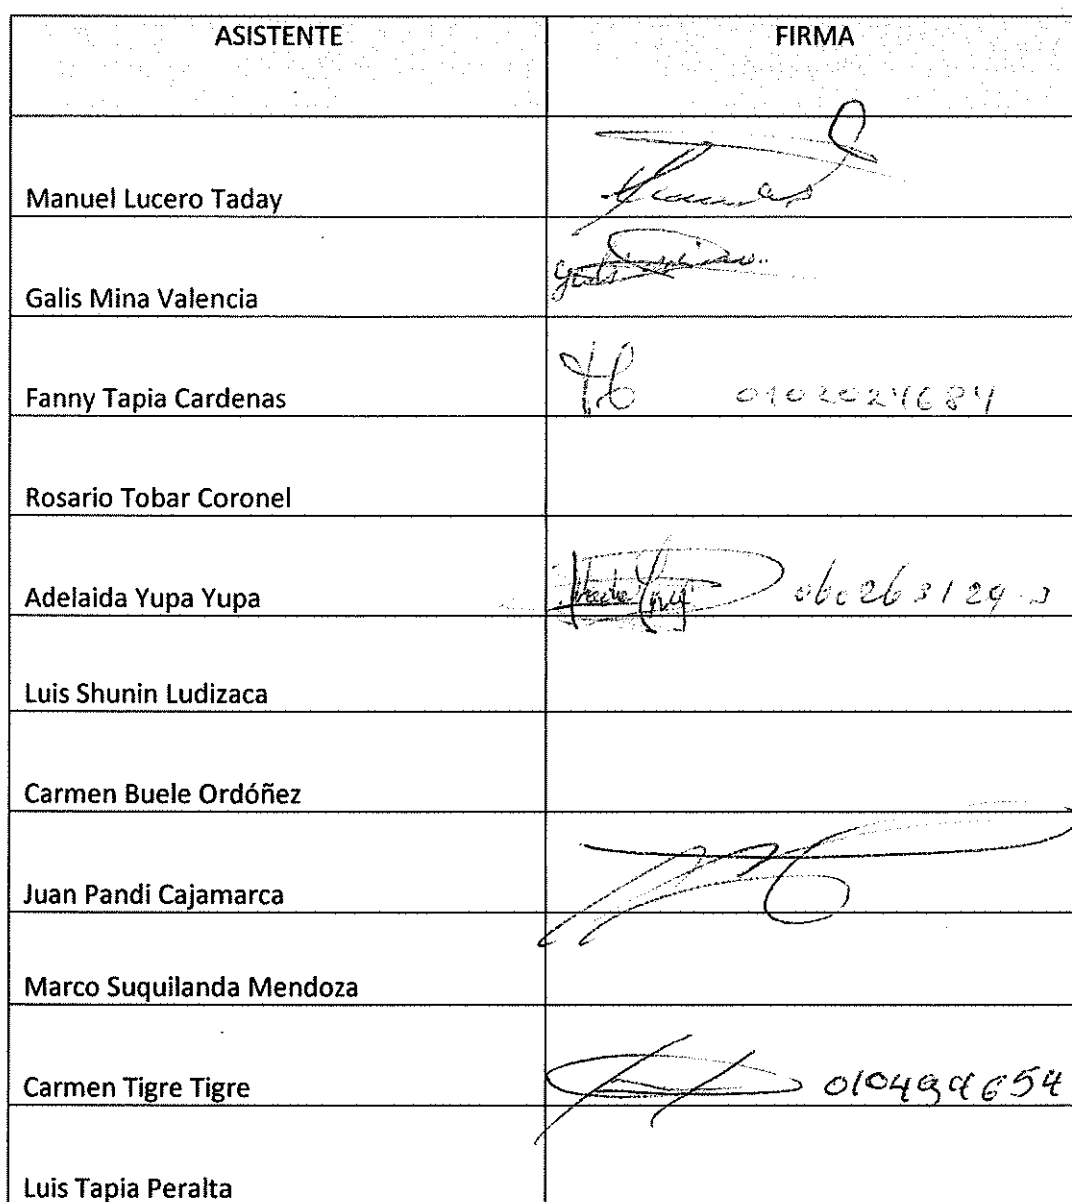 ASISTENTE FIRMA
Manuel Lucero Taday
Galis Mina Valencia
Fanny Tapia Cardenas 0102024684
Rosario Tobar Coronel
Adelaida Yupa Yupa
Luis Shunin Ludizaca
Carmen Buele Ordóñez
Juan Pandi Cajamarca
Marco Suquilanda Mendoza
Carmen Tigre Tigre
Luis Tapia Peralta